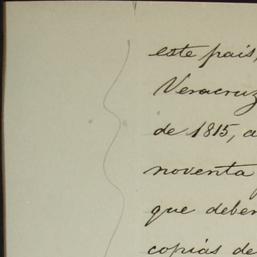 este país,
Veracruz
de 1815, a
noventa
que deben
copias de